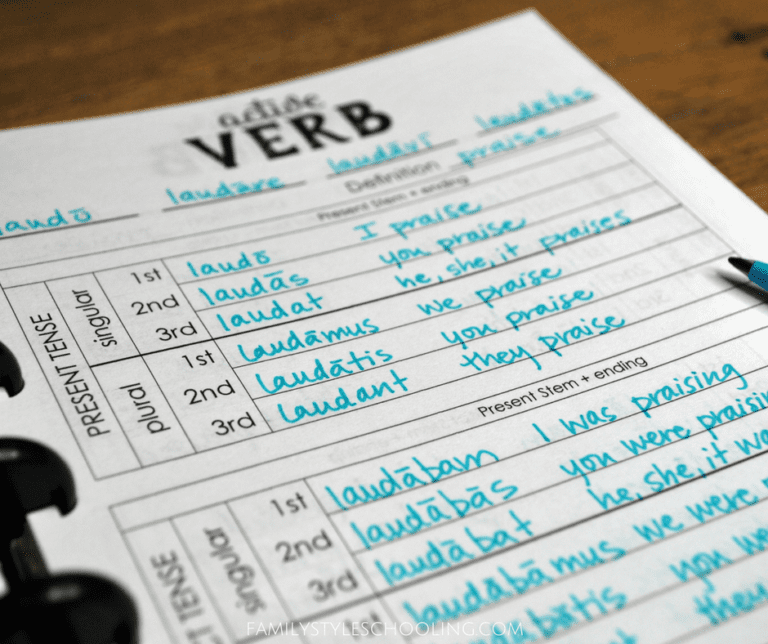 active
VERB
laudō laudāre laudāvī laudatus
Definition praise
Present Stem + ending
PRESENT TENSE
singular
1st laudō I praise
2nd laudās you praise
3rd laudat he, she, it praises
plural
1st laudāmus we praise
2nd laudātis you praise
3rd laudant they praise
Present Stem + ending
TENSE
singular
1st laudābam I was praising
2nd laudābās you were praisin
3rd laudābat he, she, it wa
laudābāmus we were
bātis you we
they
FAMILYSTYLESCHOOLING.COM